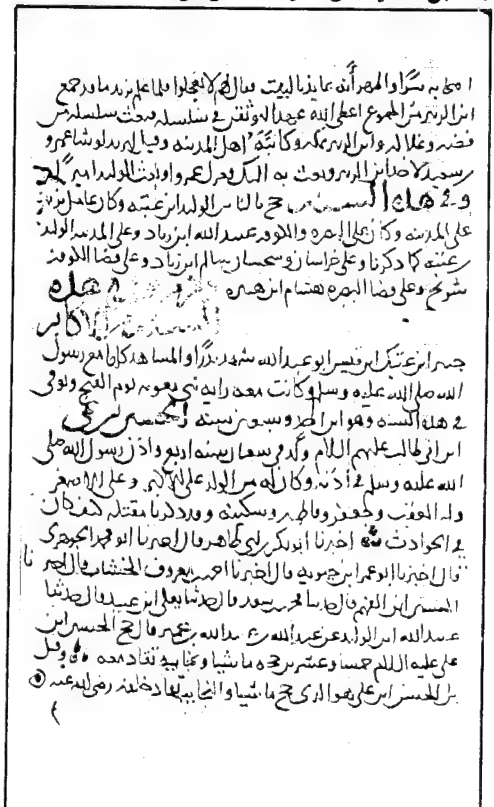 امن به سرا والمهر أنه عايذ بالبيت وقال لهم لا تعجلوا فلما علم يزيد ما قد جمع
ابن الزبير من الجموع اعطى الله عهدا ليوثقن في سلسلة فبعث سلسلة من
فضة وغلا لابن الزبير بمكة وكاتبه اهل المدينة وقيل ليزيد لو شا عمرو
بن سعيد لاخذ ابن الزبير وبعث به اليك فعزل عمرا وولى الوليد اميرا
وفي هذه السنة حج بالناس الوليد ابن عتبة وكان عامل يزيد
على المدينة وكان على البصرة والكوفة عبيد الله ابن زياد وعلى المدينة الوليد
بن عتبة كما ذكرنا وعلى خراسان وسجستان سالم ابن زياد وعلى قضا الكوفة
شريح وعلى قضا البصرة هشام ابن هبيرة هذه
السنة من الاكابر
جبر ابن عتيك ابن قيس ابو عبد الله شهد بدرا والمشاهد كلها مع رسول
الله صلى الله عليه وسلم وكانت معه راية بني معوية يوم الفتح وتوفي
في هذه السنة وهو ابن احد وسبعين سنة الحسين بن علي
ابن ابي طالب عليهم السلام ولد في شعبان سنة اربع واذن رسول الله صلى
الله عليه وسلم في أذنه وكان له من الولد علي الاكبر وعلي الاصغر
وله العقب وجعفر وفاطمة وسكينة وقد ذكرنا مقتله كيف كان
في الحوادث اخبرنا ابو بكر بن ابي طاهر قال اخبرنا ابو محمد الجوهري
قال اخبرنا ابو عمر ابن حيوية قال اخبرنا احمد بن معروف الخشاب قال اخبرنا
الحسين ابن الفهم قال حدثنا محمد بن سعد قال حدثنا يعلى ابن عبيد قال حدثنا
عبيد الله ابن الوليد عن عبد الله بن عبيد الله بن عمير قال حج الحسين ابن
علي عليه السلام خمسا وعشرين حجة ماشيا ونجايبه تقاد معه وقيل
بل الحسن ابن علي هو الذي حج ماشيا والنجايب تقاد خلفه رضي الله عنه